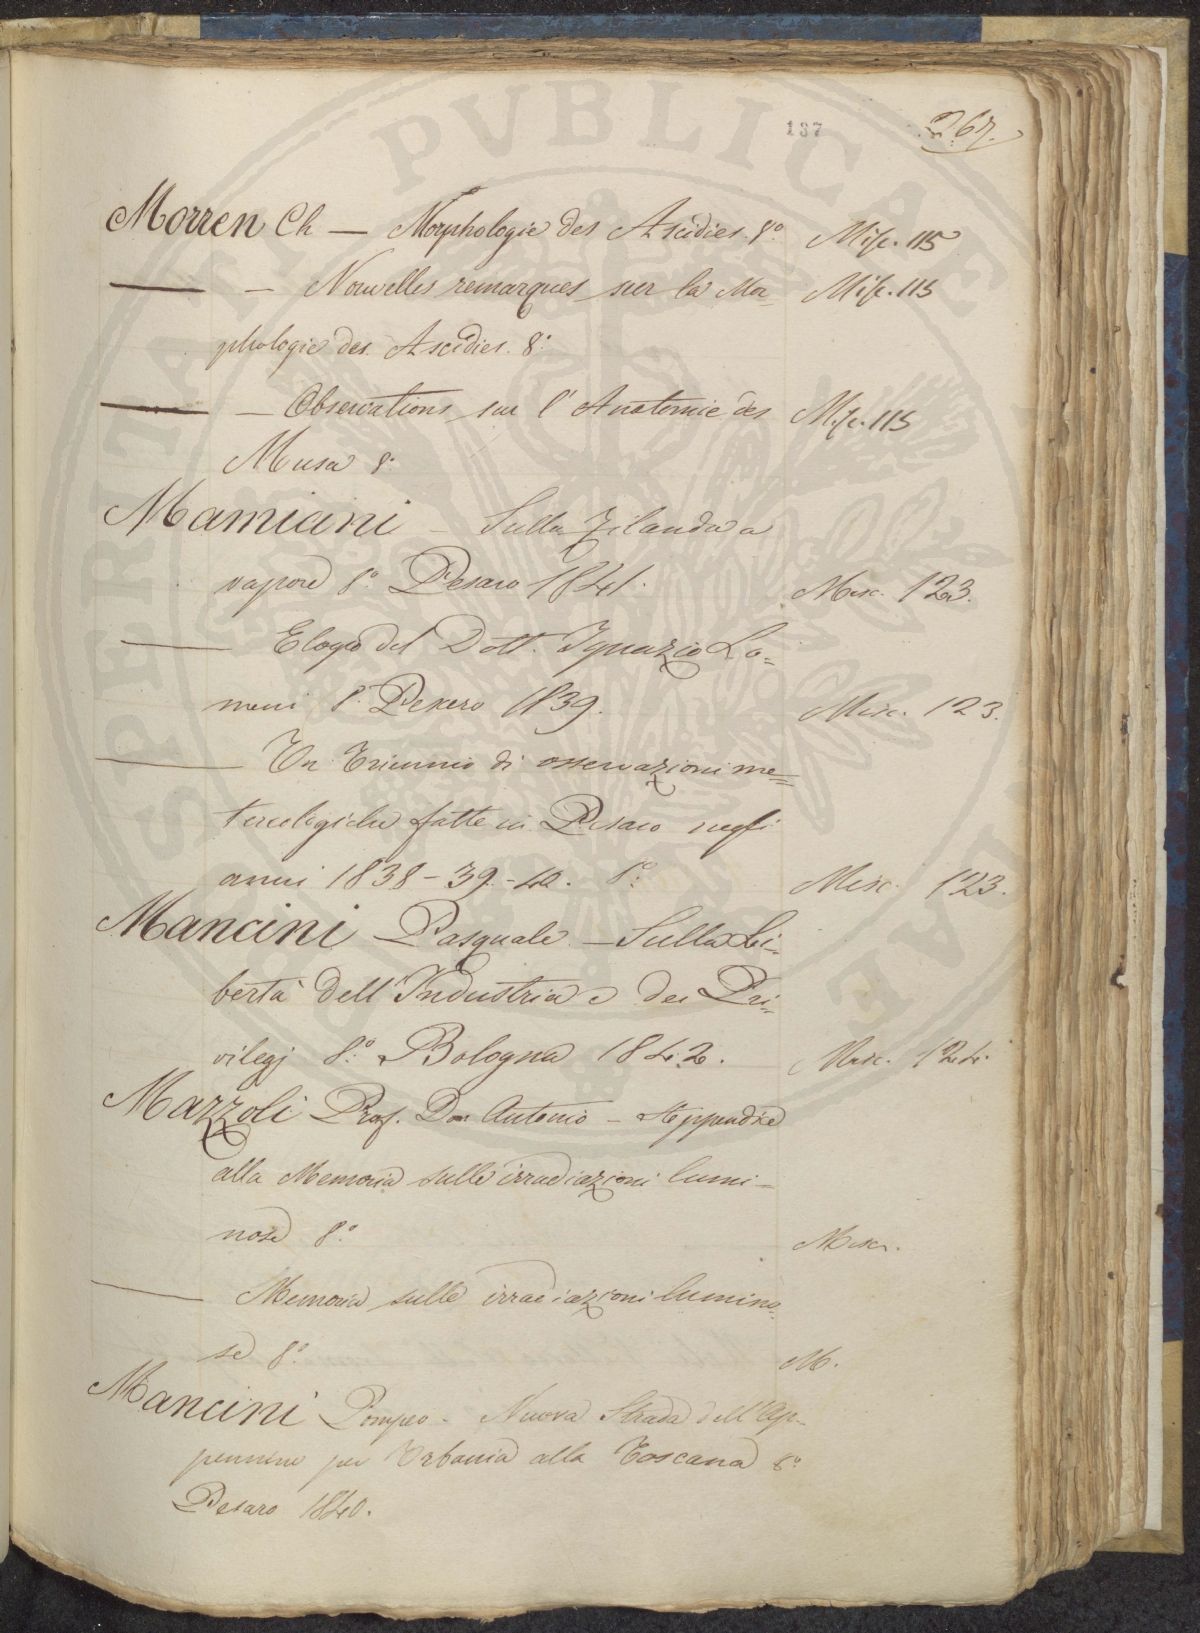 137 267.
Morren Ch — Morphologie des Ascidies. 8.o Misc. 115
— — Nouvelles remarques sur la Mor= Misc. 115
phologie des Ascidies. 8.o
— — Observations sur l'Anatomie des Misc. 115
Musa 8.o
Mamiani — Sulla Filanda a
vapore 8.o Pesaro 1841. Misc. 123.
— Elogio del Dott. Ignazio Lo=
meni 8.o Pesaro 1839. Misc. 123.
— Un Triennio di osservazioni me=
teorologiche fatte in Pesaro negli
anni 1838-39-40. 8.o Misc. 123.
Mancini Pasquale — Sulla Li=
bertà dell'Industria e dei Pri=
vilegj 8.o Bologna 1842. Misc. 124.
Mazzoli Prof. Don Antonio — Appendice
alla Memoria sulle irradiazioni lumi=
nose 8.o Misc.
— Memoria sulle irradiazioni lumino=
se 8.o M.
Mancini Pompeo — Nuova Strada dell'Ap=
pennino per Urbania alla Toscana 8.o
Pesaro 1840.
PERITATI PVBLICAE